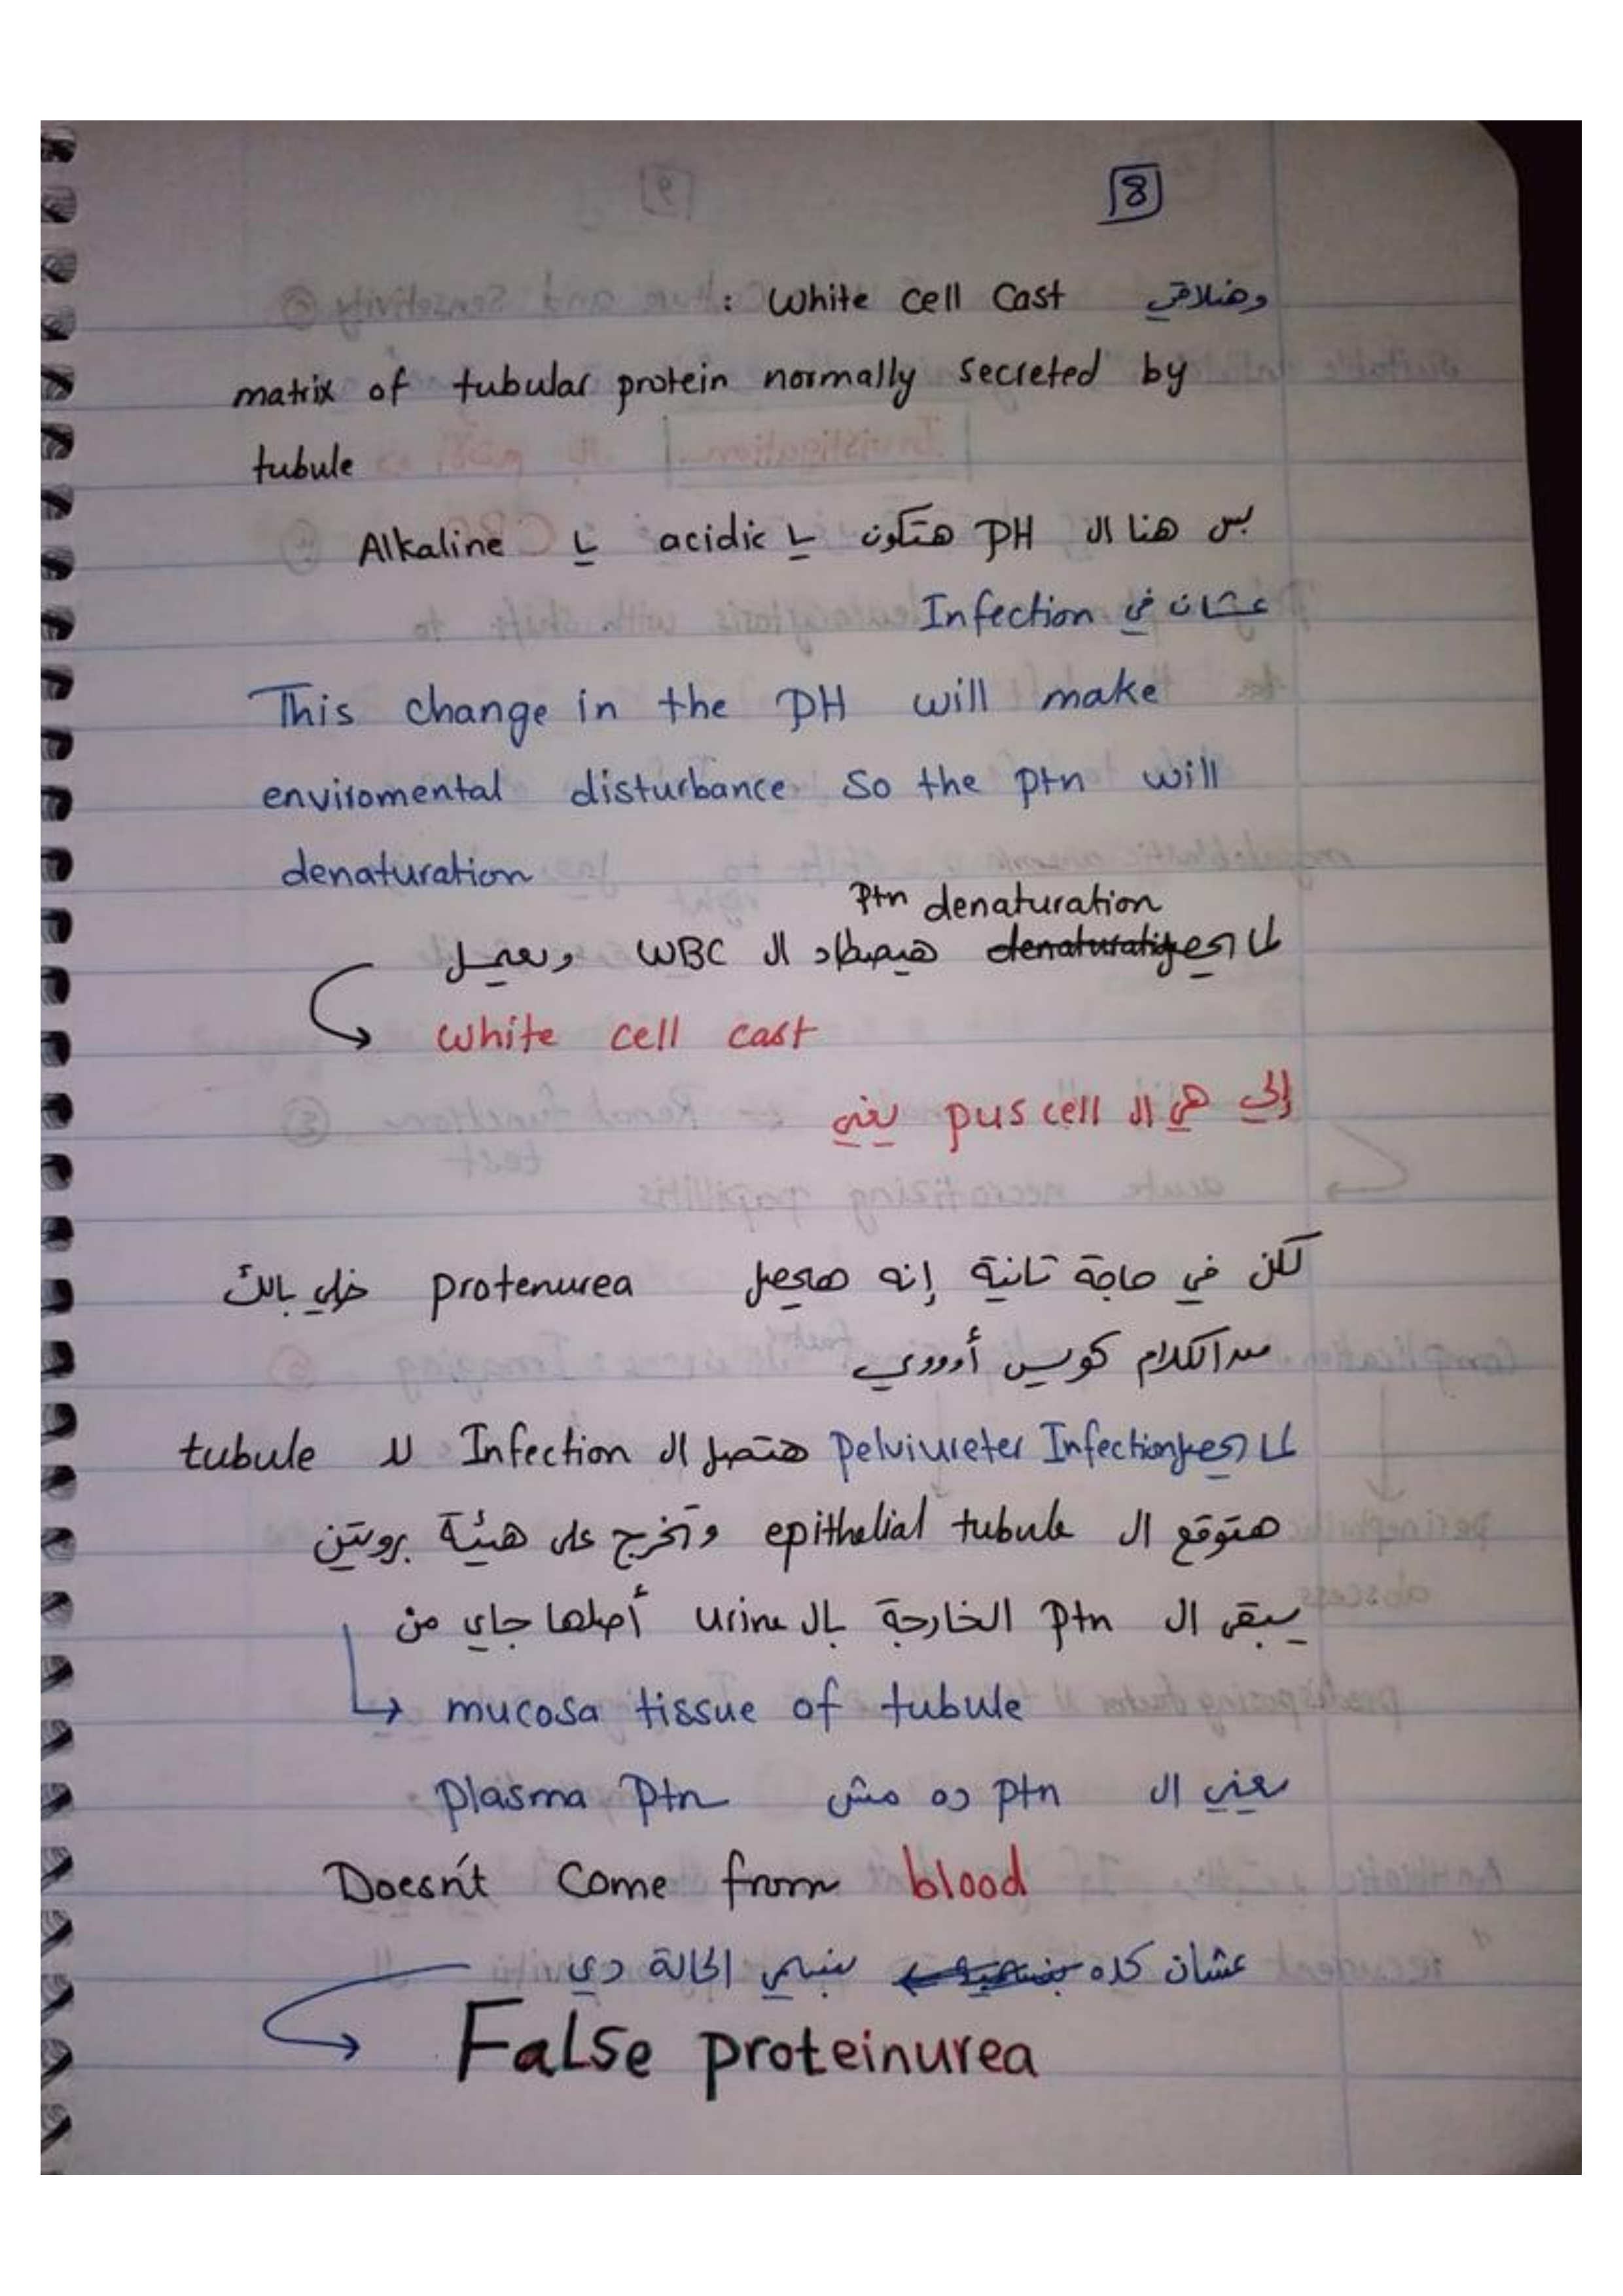 8
وهنلاقي White cell Cast :
matrix of tubular protein normally secreted by
tubule
بس هنا ال PH هتكون يا acidic يا Alkaline
عشان في Infection
This change in the PH will make
enviromental disturbance so the ptn will
denaturation
Ptn denaturation
لما يحصل denaturation هيصطاد ال WBC ويعمل
white cell cast
إلي هي ال pus cell يعني
لكن في حاجة تانية إنه هيحصل protenurea خلي بالك
من الكلام كويس أوووي
لما يحصل pelviureter Infection هتصل ال Infection لل tubule
هتوقع ال epithelial tubule وتخرج على هيئة بروتين
يبقى ال ptn الخارجة بال urine أصلها جاي من
mucosa tissue of tubule
يعني ال ptn ده مش plasma ptn
Doesn't come from blood
عشان كده بنسمي الحالة دي
False proteinurea